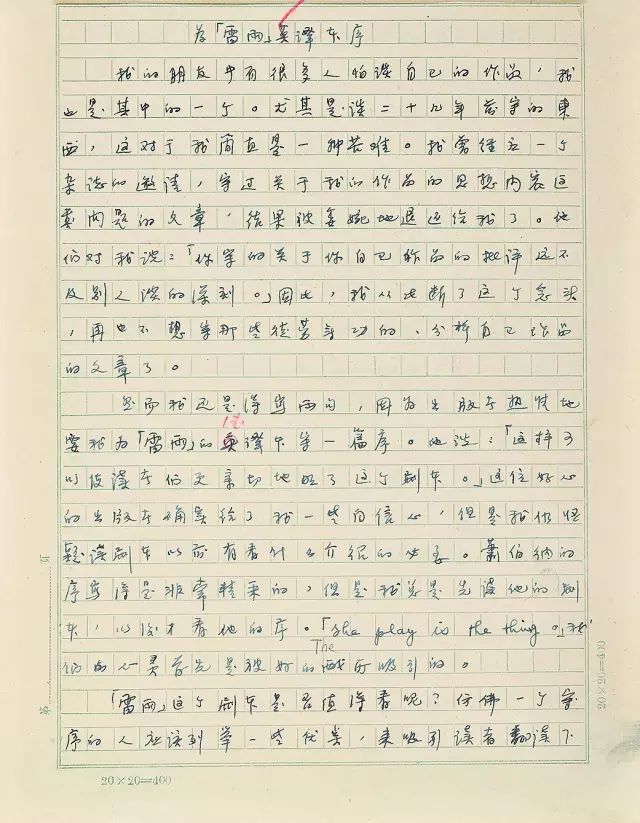 为「雷雨」英译本序
我的朋友中有很多人怕谈自己的作品，我
也是其中的一个。尤其是谈二十几年前写的东
西，这对于我简直是一种苦难。我曾经应一个
杂志的邀请，写过关于我的作品的思想内容这
类问题的文章，结果被委婉地退还给我了。他
们对我说：「你写的关于你自己作品的批评远不
及别人谈的深刻。」因此，我从此断了这个念头
，再也不想写那些徒劳无功的、分析自己作品
的文章了。
然而我还是得写两句，因为出版者热情地
法
要我为「雷雨」的英译本写一篇序。他说：「这样可
以使读者们更亲切地了这个剧本。」这位好心
的出版者确实给了我一些自信心，但是我仍怀
疑读剧本以前有看什么介绍的必要。萧伯纳的
序写得是非常精采的，但是我总是先读他的剧
本，以后才看他的序。「She play is the thing。」我
The
们的心灵首先是被好的戏所吸引的。
「雷雨」这个剧本是否值得看呢？仿佛一个写
序的人应该列举一些优美，来吸引读者翻读下
第 页
20×20=400
20×20=400